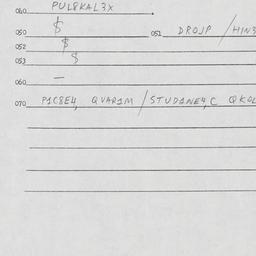 040 PUL8KAL3X
050 $ 051 DROJP / HIN3
052 $
053 $
060 —
070 P1C8E4, QVAR1M / STUD1NE4, C QKOL